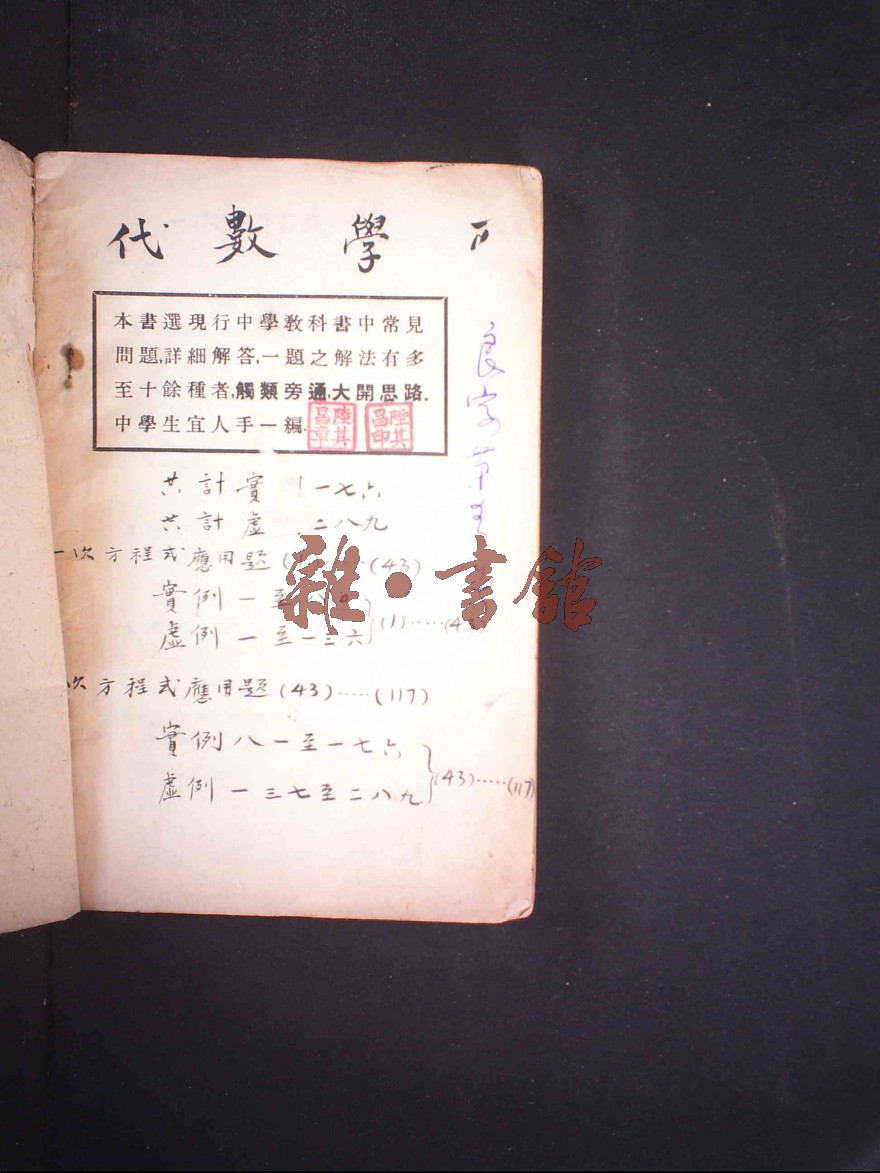 代數學
本書選現行中學教科書中常見
問題,詳細解答,一題之解法有多
至十餘種者,觸類旁通,大開思路.
中學生宜人手一編.
陸其昌章
陸其昌印
共計實 一七六
共計虛 二八九
一次方程式應用題 (43)
實例一至
虛例一至一三六 (1)……(43)
次方程式應用題(43)……(117)
實例八一至一七六
虛例一三七至二八九 (43)……(117)
雜·書館